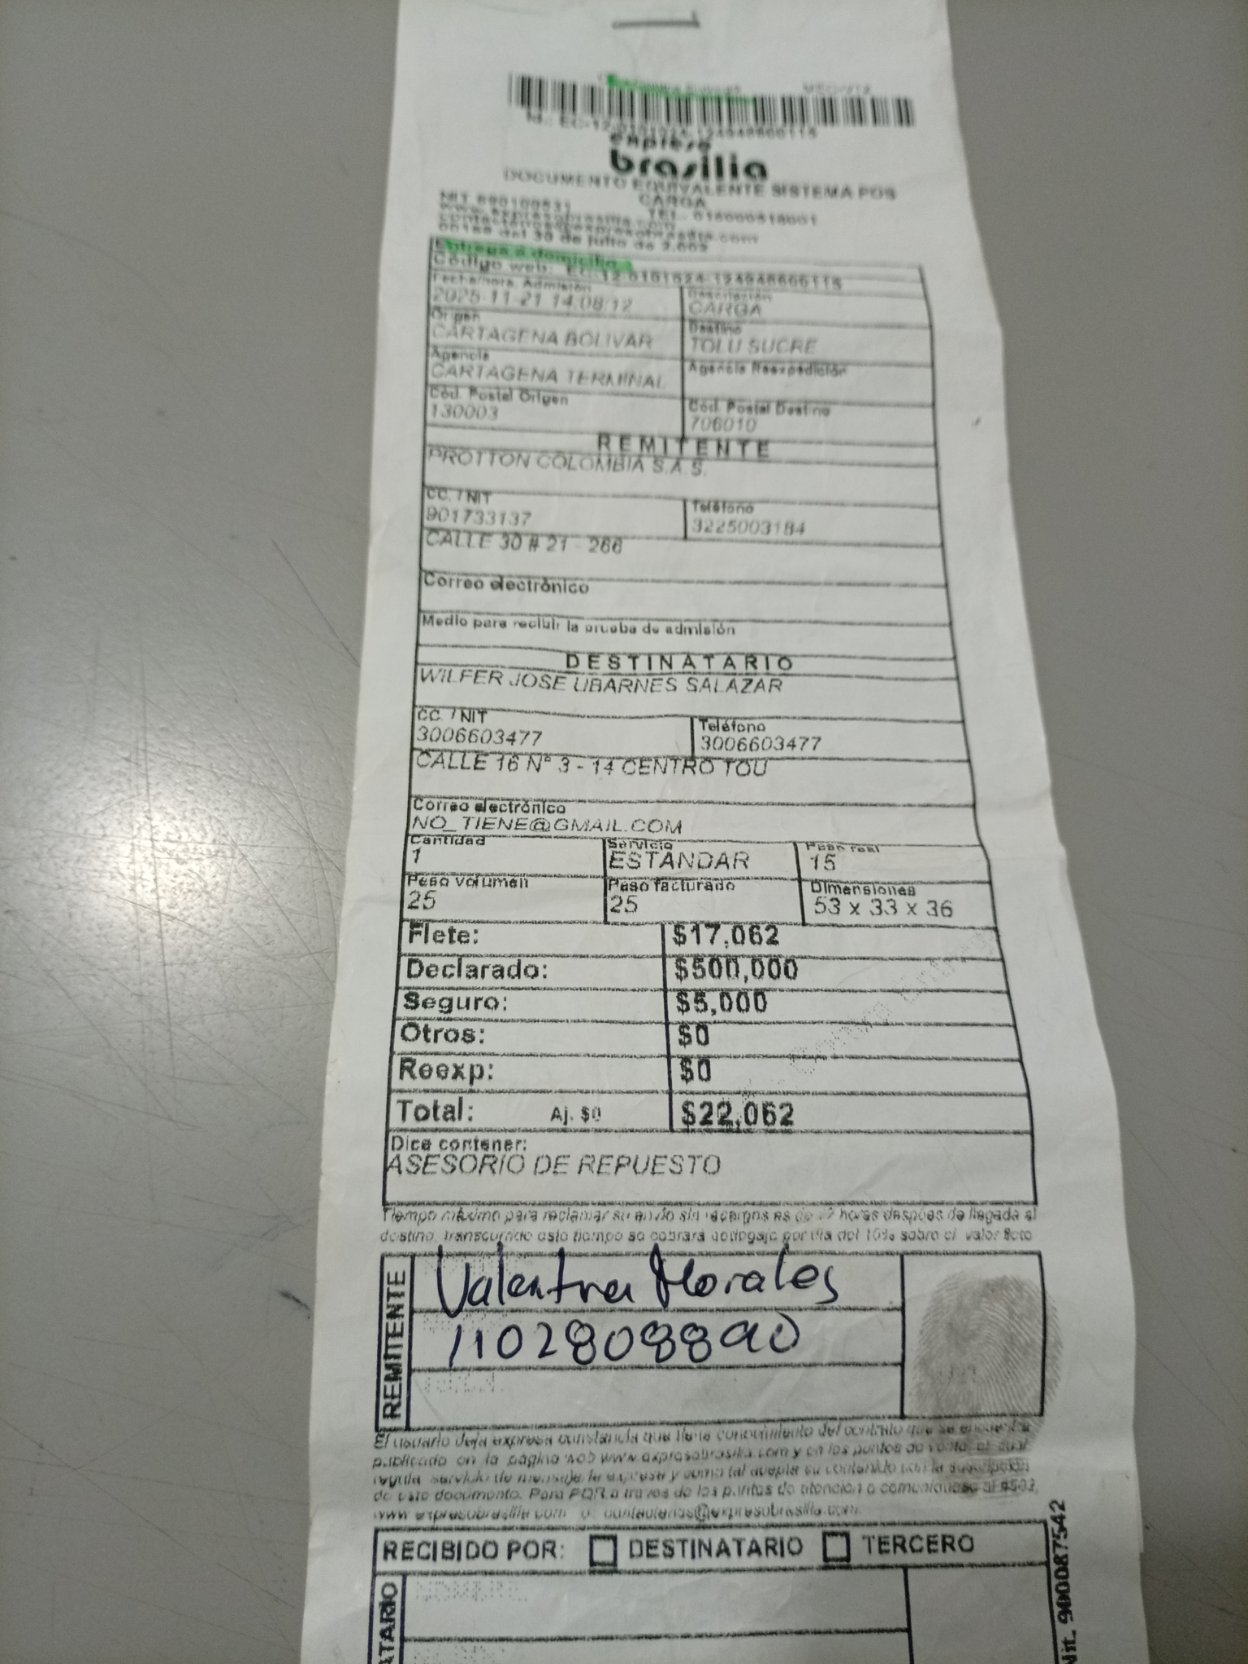 expreso
brasilia
DOCUMENTO EQUIVALENTE SISTEMA POS
CARGA
NIT 890100531 TEL. 018000518001
www.expresobrasilia.com
contactenos@expresobrasilia.com
00188 del 30 de julio de 2,002
Entrega a domicilio
Código web: EC-12-0101524-124948600115
Fecha/hora Admisión Descripción
2025-11-21 14:08:12 CARGA
Origen Destino
CARTAGENA BOLIVAR TOLU SUCRE
Agencia Agencia Reexpedición
CARTAGENA TERMINAL
Cód. Postal Origen Cód. Postal Destino
130003 706010
REMITENTE
PROTTON COLOMBIA S.A.S.
CC. / NIT Teléfono
901733137 3225003184
CALLE 30 # 21 - 266
Correo electrónico
Medio para recibir la prueba de admisión
DESTINATARIO
WILFER JOSE UBARNES SALAZAR
CC. / NIT Teléfono
3006603477 3006603477
CALLE 16 N° 3 - 14 CENTRO TOU
Correo electrónico
NO_TIENE@GMAIL.COM
Cantidad Servicio Peso real
1 ESTANDAR 15
Peso volumen Peso facturado Dimensiones
25 25 53 x 33 x 36
Flete: $17,062
Declarado: $500,000
Seguro: $5,000
Otros: $0
Reexp: $0
Total: Aj. $0 $22,062
Dice contener:
ASESORIO DE REPUESTO
Tiempo máximo para reclamar su envío sin recargos es de 72 horas después de llegada al
destino, transcurrido este tiempo se cobrará bodegaje por día del 10% sobre el valor flete
REMITENTE
Valentina Morales
1102808890
El usuario deja expresa constancia que tiene conocimiento del contrato que se encuentra
publicado en la página web www.expresobrasilia.com y en los puntos de venta, el cual
regula servicio de mensajería expresa y como tal acepta su contenido con la suscripción
de este documento. Para PQR a través de los puntos de atención o comunicarse al #502,
www.expresobrasilia.com o contactenos@expresobrasilia.com
RECIBIDO POR: DESTINATARIO TERCERO
NOMBRE
ATARIO
Nit. 900087542